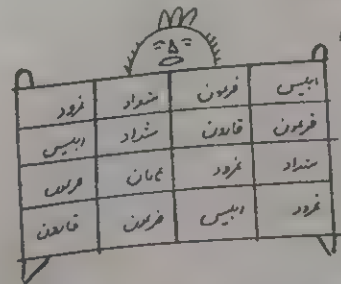 ابلیس فرعون شداد نمرود
فرعون قارون شداد ابلیس
شداد نمرود هامان فرعون
نمرود ابلیس فرعون قارون